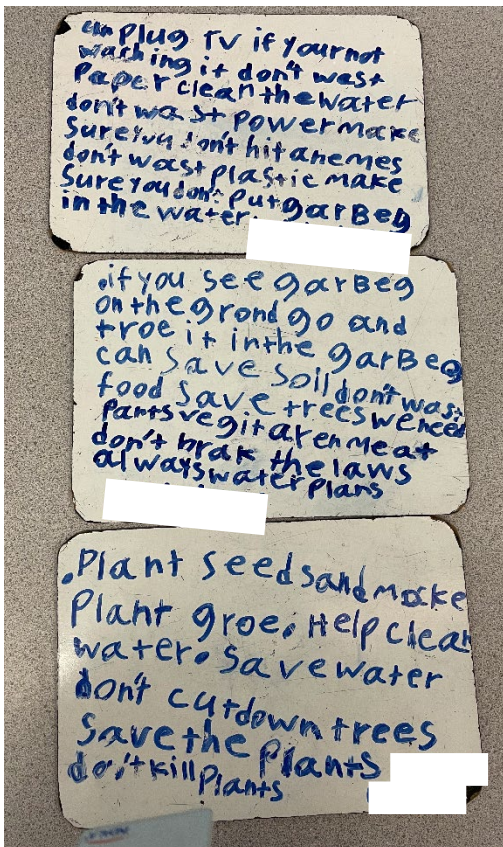 un plug TV if your not
waching it don't wast
Paper clean the water
don't wast power make
Sure you don't hit anemes
don't wast plastic make
Sure you don't put garBeg
in the water.
.if you see garBeg
on the grond go and
troe it in the garBeg
can save soil don't wast
food save trees we need
pants vegitaren meat
don't brak the laws
always water plans
.Plant seeds and make
Plant groe. Help clean
water. Save water
don't cut down trees
Save the plants
don't kill Plants